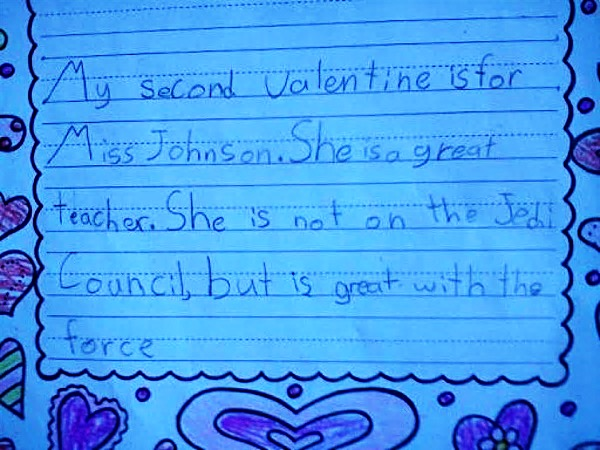 My second Valentine is for
Miss Johnson. She is a great
teacher. She is not on the Jedi
Council, but is great with the
force